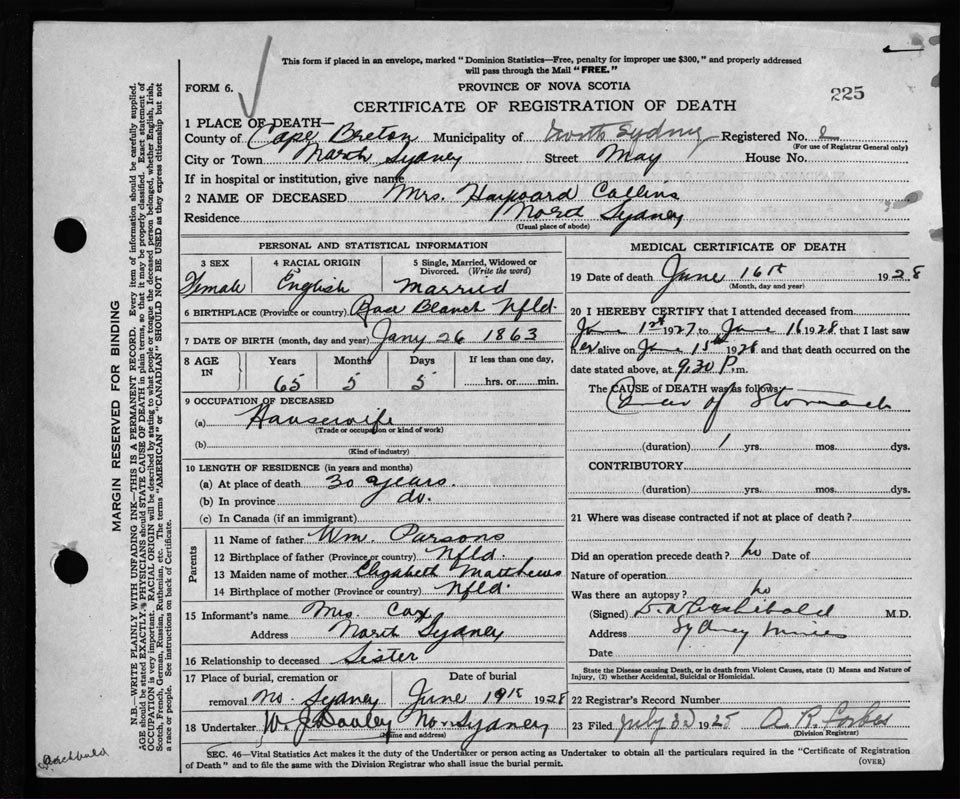 This form if placed in an envelope, marked "Dominion Statistics—Free, penalty for improper use $300," and properly addressed
will pass through the Mail "FREE."
FORM 6.
PROVINCE OF NOVA SCOTIA
225
CERTIFICATE OF REGISTRATION OF DEATH
1 PLACE OF DEATH—
County of Cape Breton Municipality of North Sydney Registered No.
(For use of Registrar General only)
City or Town North Sydney Street May House No.
If in hospital or institution, give name
2 NAME OF DECEASED Mrs. Hayward Collins
Residence North Sydney
(Usual place of abode)
PERSONAL AND STATISTICAL INFORMATION
3 SEX 4 RACIAL ORIGIN 5 Single, Married, Widowed or
Divorced. (Write the word)
Female English Married
6 BIRTHPLACE (Province or country) Rose Blanch Nfld.
7 DATE OF BIRTH (month, day and year) Jany 26 1863
8 AGE IN Years Months Days If less than one day,
65 5 5 hrs. or min.
9 OCCUPATION OF DECEASED
(a) Housewife
(Trade or occupation or kind of work)
(b)
(Kind of industry)
10 LENGTH OF RESIDENCE (in years and months)
(a) At place of death 30 years.
(b) In province do.
(c) In Canada (if an immigrant)
Parents
11 Name of father Wm. Parsons
12 Birthplace of father (Province or country) Nfld.
13 Maiden name of mother Elizabeth Matthews
14 Birthplace of mother (Province or country) Nfld.
15 Informant's name Mrs. Cox
Address North Sydney
16 Relationship to deceased Sister
17 Place of burial, cremation or removal Date of burial
No. Sydney June 19 1928
18 Undertaker W. J. Dooley No. Sydney
(Name and address)
MEDICAL CERTIFICATE OF DEATH
19 Date of death June 16th 1928
(Month, day and year)
20 I HEREBY CERTIFY that I attended deceased from
June 1st 1927 to June 16 1928 that I last saw
her alive on June 15th 1928 and that death occurred on the
date stated above, at 9.30 P.m.
The CAUSE of DEATH was as follows:
Cancer of Stomach
(duration) 1 yrs. mos. dys.
CONTRIBUTORY
(duration) yrs. mos. dys.
21 Where was disease contracted if not at place of death?
Did an operation precede death? no Date of
Nature of operation
Was there an autopsy? no
(Signed) Archibald M.D.
Address Sydney Mines
Date
State the Disease causing Death, or in death from Violent Causes, state (1) Means and Nature of
Injury, (2) whether Accidental, Suicidal or Homicidal.
22 Registrar's Record Number
23 Filed July 1928 A. R. Forbes
(Division Registrar)
SEC. 46—Vital Statistics Act makes it the duty of the Undertaker or person acting as Undertaker to obtain all the particulars required in the "Certificate of Registration
of Death" and to file the same with the Division Registrar who shall issue the burial permit.
(OVER)
MARGIN RESERVED FOR BINDING
N.B.—WRITE PLAINLY WITH UNFADING INK—THIS IS A PERMANENT RECORD. Every item of information should be carefully supplied.
AGE should be stated EXACTLY. PHYSICIANS should STATE CAUSE OF DEATH in plain terms, so that it may be properly classified. Exact statement of
OCCUPATION is very important. RACIAL ORIGIN will be described by stating to what people or tongue the deceased person belonged, whether English, Irish,
Scotch, French, German, Russian, Ruthenian, etc. The terms "AMERICAN" or "CANADIAN" SHOULD NOT BE USED as they express citizenship but not
a race or people. See instructions on back of Certificate.
Archibald